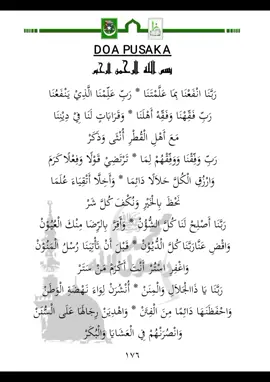 DOA PUSAKA
بسم الله الرحمن الرحيم
رَبَّنَا انْفَعْنَا بِمَا عَلَّمْتَنَا * رَبِّ عَلِّمْنَا الَّذِيْ يَنْفَعُنَا
رَبِّ فَقِّهْنَا وَفَقِّهْ أَهْلَنَا * وَقَرَابَاتٍ لَنَا فِيْ دِيْنِنَا
مَعَ أَهْلِ الْقُطْرِ أُنْثَى وَذَكَرْ
رَبِّ وَفِّقْنَا وَوَفِّقْهُمْ لِمَا * تَرْتَضِيْ قَوْلًا وَفِعْلًا كَرَمَا
وَارْزُقِ الْكُلَّ حَلَالًا دَائِمًا * وَأَخِلَّا أَتْقِيَاءَ عُلَمَا
نَحْظَ بِالْخَيْرِ وَنُكْفَ كُلَّ شَرّْ
رَبَّنَا أَصْلِحْ لَنَا كُلَّ الشُّؤُنْ * وَأَقِرَّ بِالرِّضَا مِنْكَ الْعُيُوْنْ
وَاقْضِ عَنَّا رَبَّنَا كُلَّ الدُّيُوْنْ * قَبْلَ أَنْ تَأْتِيَنَا رُسُلُ الْمَنُوْنْ
وَاغْفِرِ اسْتُرْ أَنْتَ أَكْرَمُ مَنْ سَتَرْ
رَبَّنَا يَا ذَاالْجَلَالِ وَالْمِنَنْ * أُنْشُرَنْ لِوَاءَ نَهْضَةِ الْوَطَنْ
وَاحْفَظَنْهَا دَائِمًا مِنَ الْفِتَنْ * وَاهْدِيَنْ رِجَالَهَا عَلَى السُّنَنْ
وَانْصُرَنْهُمْ فِي الْعَشَايَا وَالْبُكَرْ
١٧٦